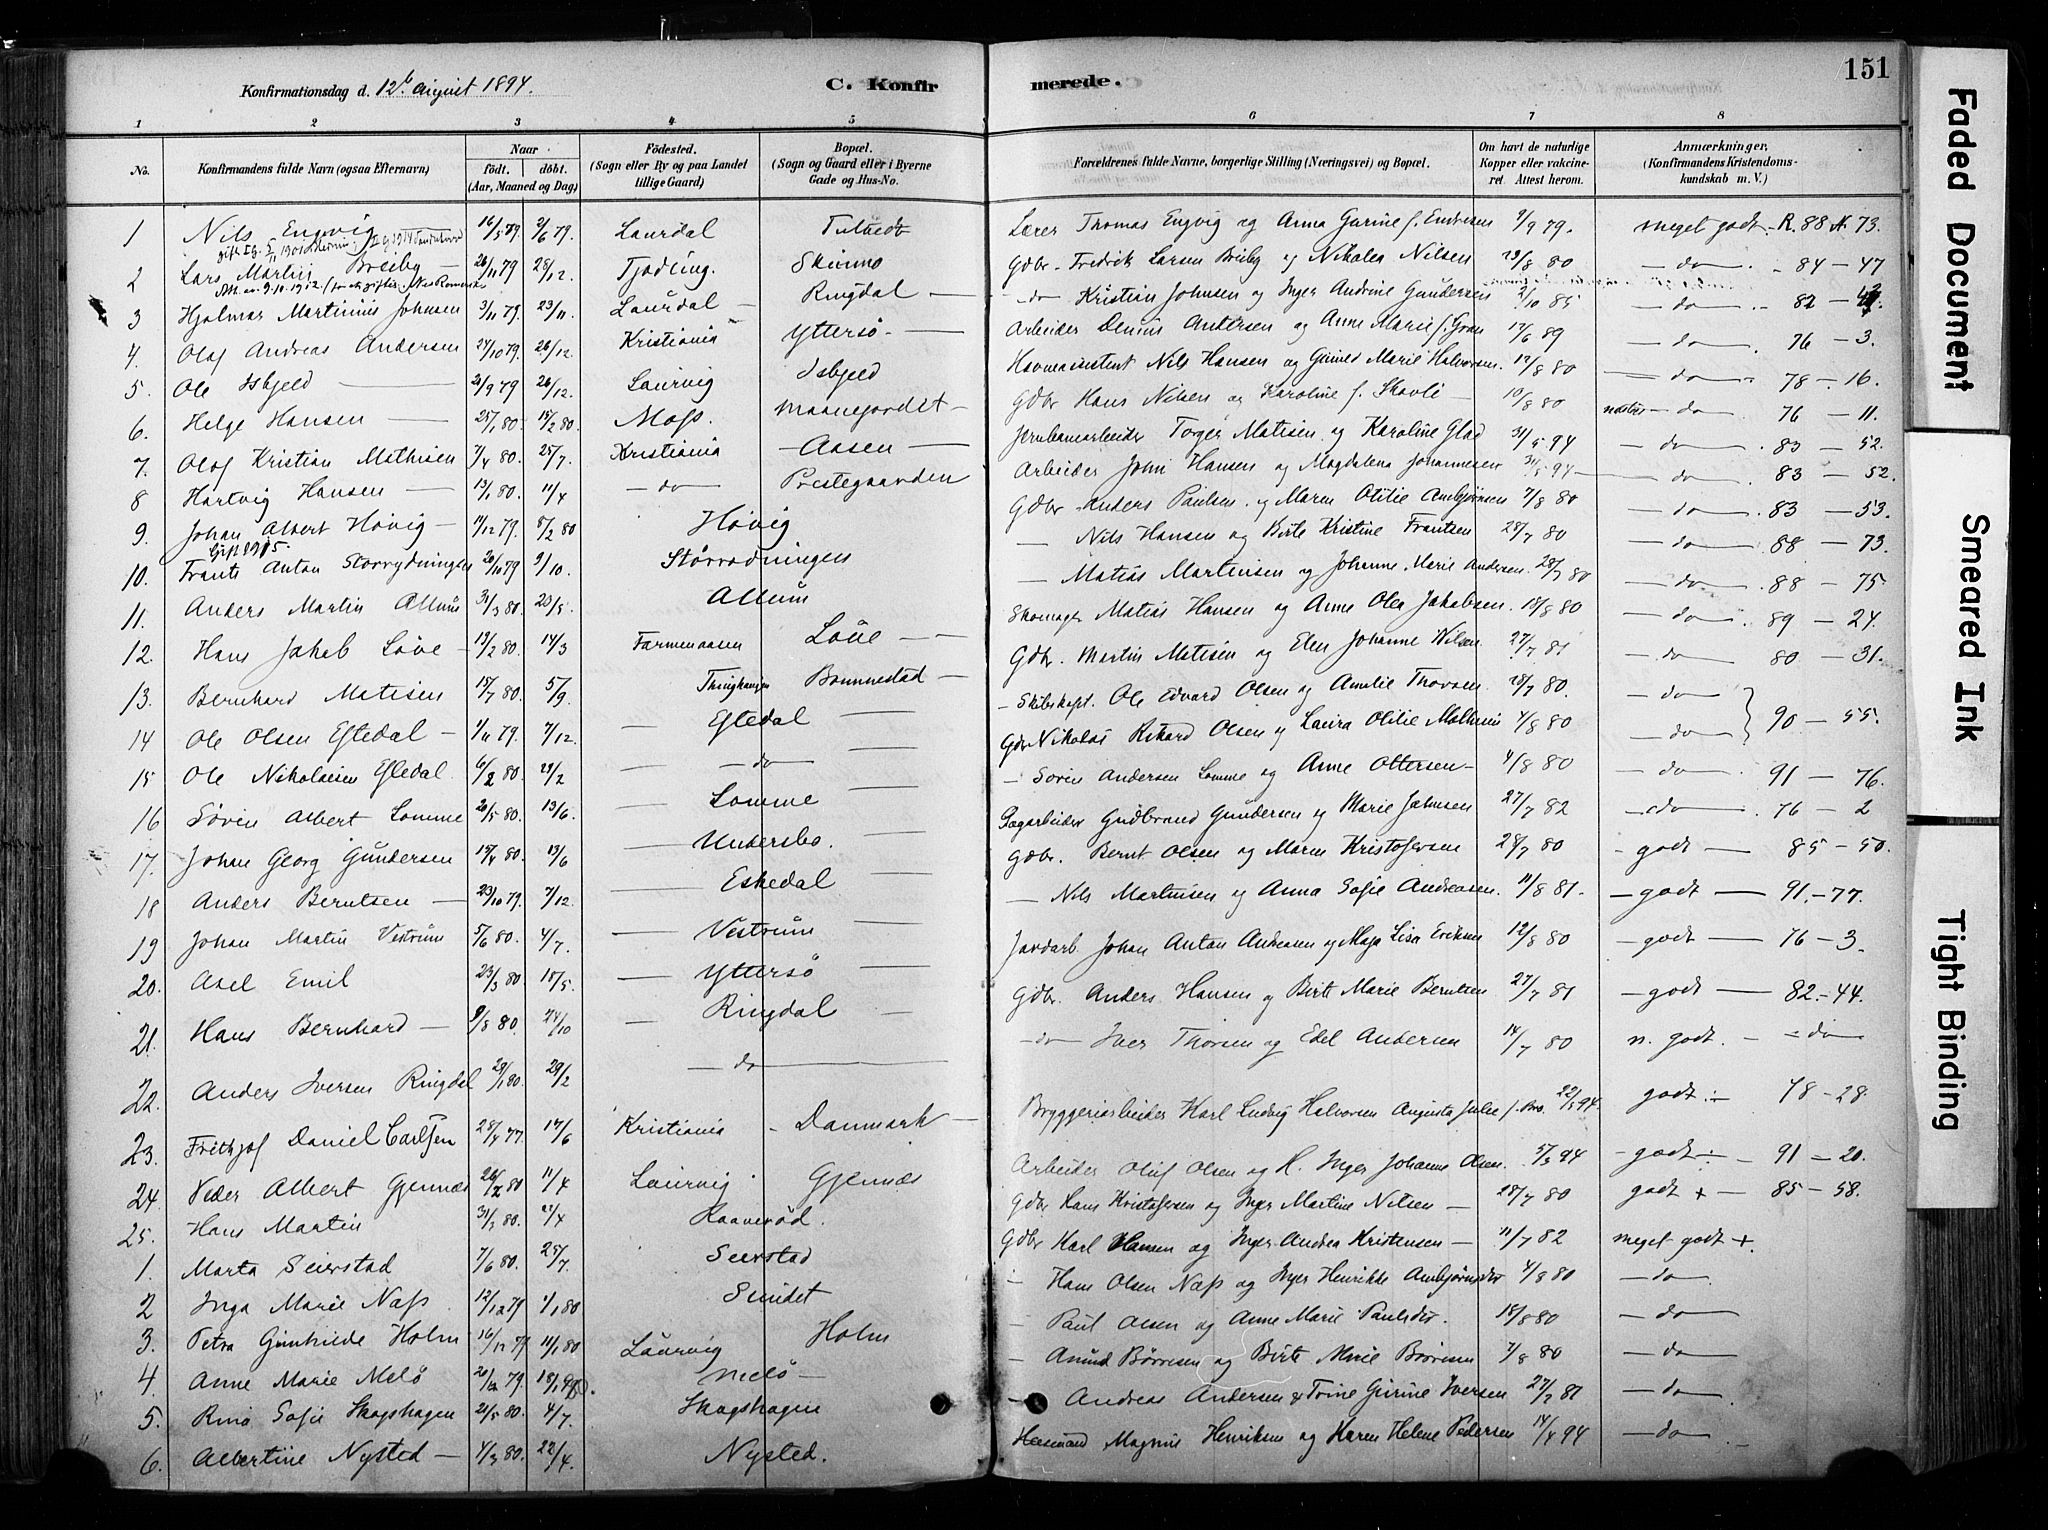 Konfirmationsdag d. 12te august 1894. C. Konfirmerede. 151
1 2 3 4 5 6 7 8
No. Konfirmandens fulde Navn (ogsaa Efternavn) Naar født. døbt. (Aar, Maaned og Dag) Fødested. (Sogn eller By og paa Landet tillige Gaard) Bopæl. (Sogn og Gaard eller i Byerne Gade og Hus-No. Forældrenes fulde Navne, borgerlige Stilling (Næringsvei) og Bopæl. Om havt de naturlige Kopper eller vakcineret. Attest herom. Anmærkninger. (Konfirmandens Kristendomskundskab m. V.)
1 Nils Engvig 16/5 79. 2/6 79. Laurdal Lærer Thomas Engvig og Anna Gurine f. Endresen 9/9 79. meget godt - R. 88 N. 73.
2 Lars Martin Breiby 26/11 79 28/12. Tjodling. Skinmo Gdbr. Fredrik Larsen Breiby og Nikolea Nilsen 23/8 80 - do - 84 - 47
3 Hjalmar Martinius Johnsen 3/11 79. 23/11. Laurdal Ringdal - do Kristian Johnsen og Inger Andrine Gundersen 2/10 85 - do - 82
4. Olaf Andreas Andersen 24/10 79. 26/12. Kristiania Yttersø - Arbeider Andersen og Anne Marie f. Gran 17/6 89 - do - 76 - 3.
5. Ole Isbjeld 2/9 79 26/12. Laurvig Isbjeld Nils Hansen og Marie Halvorsen 12/8 80 - do - 78 - 16.
6. Helge Hansen 25/1 80. 15/2 80. Moss. Gdbr Hans Nilsen og Karoline f. Skovli 10/8 80 - do - 76 - 11.
7. Olaf Kristian Mathisen 7/4 80. 25/7. Kristiania - Aasen Jernbanearbeider Torger Matisen og Karoline Glad 31/5 94 - do - 83 - 52.
8 Hartvig Hansen 13/1 80. 11/4 - do Prestegaarden Arbeider John Hansen og Magdalena Johannesen 31/5 94 - do - 83 - 52.
9. Johan Albert Høvig 14/12 79. 8/2 80 Høvig Gdbr Anders Paulsen og Maren Otilie Ambjørnsen 7/8 80 - do - 83 - 53.
Gift 1915.
10. Frants Anton 20/10 79 9/10. Størrødningen - Nils Hansen og Birte Kristine Frantsen 28/7 80 - do - 88 - 73.
11. Anders Martin Allum 31/3 80. 23/5. Allum - Matias Martinsen og Johanne Marie Andersen. 28/7 80 - do - 88 - 75
12. Hans Jakob Løve 19/2 80. 14/3 Farmenaasen Løve Skomager Matias Hansen og Anne Olea Jakobsen 18/8 80 - do - 89 - 24.
13. Bernhard Matisen 15/7 80. 5/9. Thinghaugen Bommestad Gdbr. Martin Matisen og Elen Johanne Nilsen 27/7 81 - do - 80 - 31.
14 Ole Olsen Eftedal 1/11 79. 7/12. - Eftedal Skibskapt. Ole Edvard Olsen og Amelie Thorsen 28/7 80. - do
15 Ole Nikolaisen Eftedal 6/2 80. 29/2 - do Gdbr Nikolas Rikard Olsen og Laura Otilie 4/8 80 - do } 90 - 55.
16 Søren Albert Lomme 20/5 80. 13/6. - Lomme - Søren Andersen Lomme og Anne Ottersen 4/8 80 - do - 91 - 76.
17. Johan Georg Gundersen 15/4 80. 13/6 - Undersbo. Sagarbeider Gudbrand Gundersen og Marie Johnsen 27/7 82 - do - 76 - 2
18 Anders Berntsen 23/10 79. 7/12. - Eskedal Gdbr. Bernt Olsen og Maren Kristofersen 28/7 80 - godt - 85 - 50.
19 Johan Martin Vestrum 5/6 80. 4/7. - Vestrum - Nils Martinsen og Anna Sofie Andreasen. 11/8 81. - godt - 91. - 77.
20. Axel Emil 23/3 80 18/5. - Yttersø Jordarb Johan Anton Andreasen og Maja Lisa Eriksen 12/8 80 - godt - 76 - 3.
21. Hans Bernhard 9/8 80. 24/10 - Ringdal Gdbr. Anders Hansen og Birte Marie Berntsen 27/7 81 - godt - 82. - 44.
22. Anders Iversen Ringdal 29/1 80. 29/2 - do - do - Iver Thorsen og Edel Andersen 14/7 80 n. godt. - = do
23. Frithjof Daniel Carlsen 28/4 77. 17/6 Kristiania - Danmark Bryggeriarbeider Karl Ludvig Halvorsen Augusta Julie f. Bro. 22/5 94. godt - 78 - 28.
24. Peder Albert Gjennes 26/2 80 11/4 Laurvig Gjennes Arbeider Oluf Olsen og H. Inger Johanne Olsen. 5/3 94 - godt - 91 - 20.
25. Hans Martin 31/3 80. Raaverød. Gdbr Hans Kristofersen og Inger Martine Nilsen 28/7 80 godt + - 85 - 58.
1. Marta Seierstad 7/6 80. 25/7. Seierstad Gdbr Karl Hansen og Inger Andrea Kristensen 11/7 82 meget godt +.
2 Inga Marie Næss. 12/12 79 1/1 80 Sundet - Hans Olsen Næss og Inger Henrikke 4/8 80 - do
3. Petra Gunhilde Holm 16/12 79 11/1 80 Laurvig Holm - Paul Olsen og Anne Marie Paulsdt. 18/8 80 - do
4. Anne Marie Melø 20/12 79. 18/1 80. Melø - Amund Børresen og Birte Marie Børresen 7/8 80 - do
5. Rina Sofie Skogshagen 21/5 80. 4/7. Skogshagen - Andreas Andersen & Trine Gurine Iversen 27/2 81 - do
6. Albertine Nysted 4/3 80. 22/4. Nysted. Magnus Henriksen og Karen Helene Pedersen 14/4 94 - do
Faded Document
Smeared Ink
Tight Binding